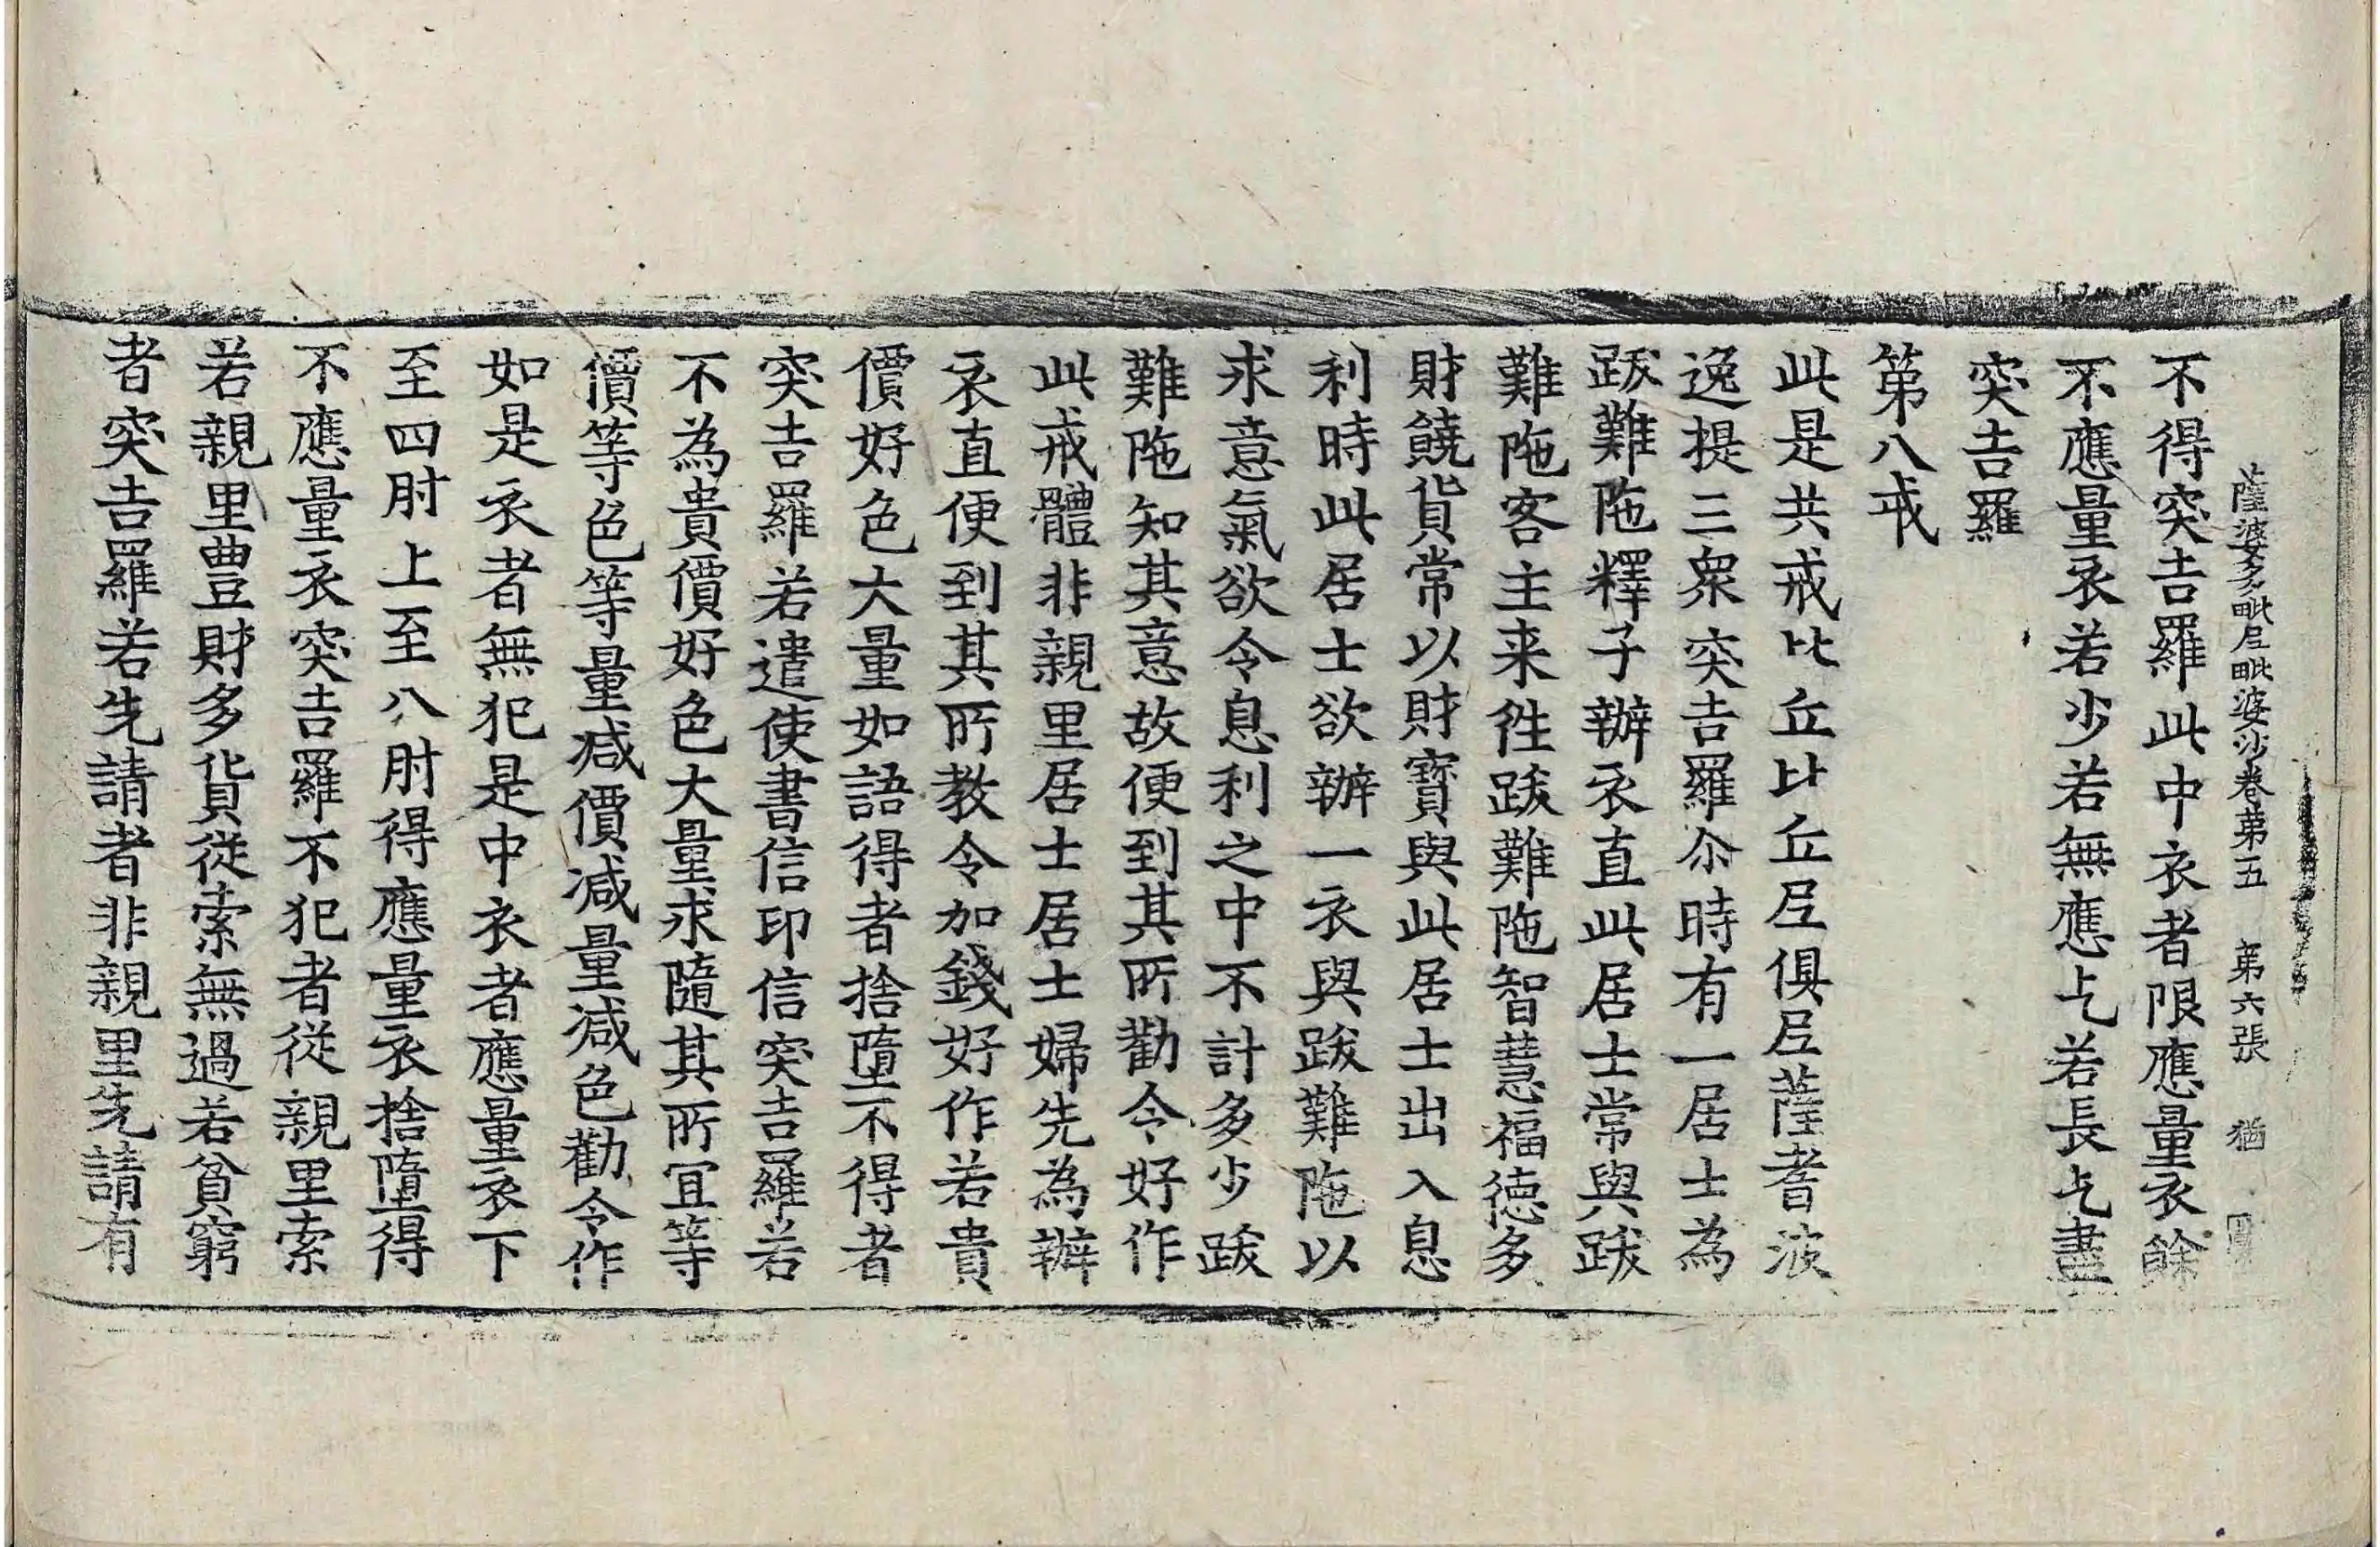 薩婆多毗尼毗婆沙卷苐五 苐六張 猶
不得突吉羅此中衣者限應量衣餘
不應量衣若少若無應乞若長乞盡
突吉羅
第八戒
此是共戒比丘比丘尼俱尼薩耆波
逸提三衆突吉羅尒時有一居士為
跋難陁釋子辦衣直此居士常與跋
難陁客主来徃跋難陁智慧福德多
財饒貨常以財寶與此居士出入息
利時此居士欲辦一衣與跋難陁以
求意氣欲令息利之中不計多少跋
難陁知其意故便到其所勸令好作
此戒體非親里居士居士婦先為辦
衣直便到其所教令加錢好作若貴
價好色大量如語得者捨墮不得者
突吉羅若遣使書信印信突吉羅若
不為貴價好色大量求隨其所冝等
價等色等量減價減量減色勸令作
如是衣者無犯是中衣者應量衣下
至四肘上至八肘得應量衣捨墮得
不應量衣突吉羅不犯者從親里索
若親里豊財多貨從索無過若貧窮
者突吉羅若先請者非親里先請有